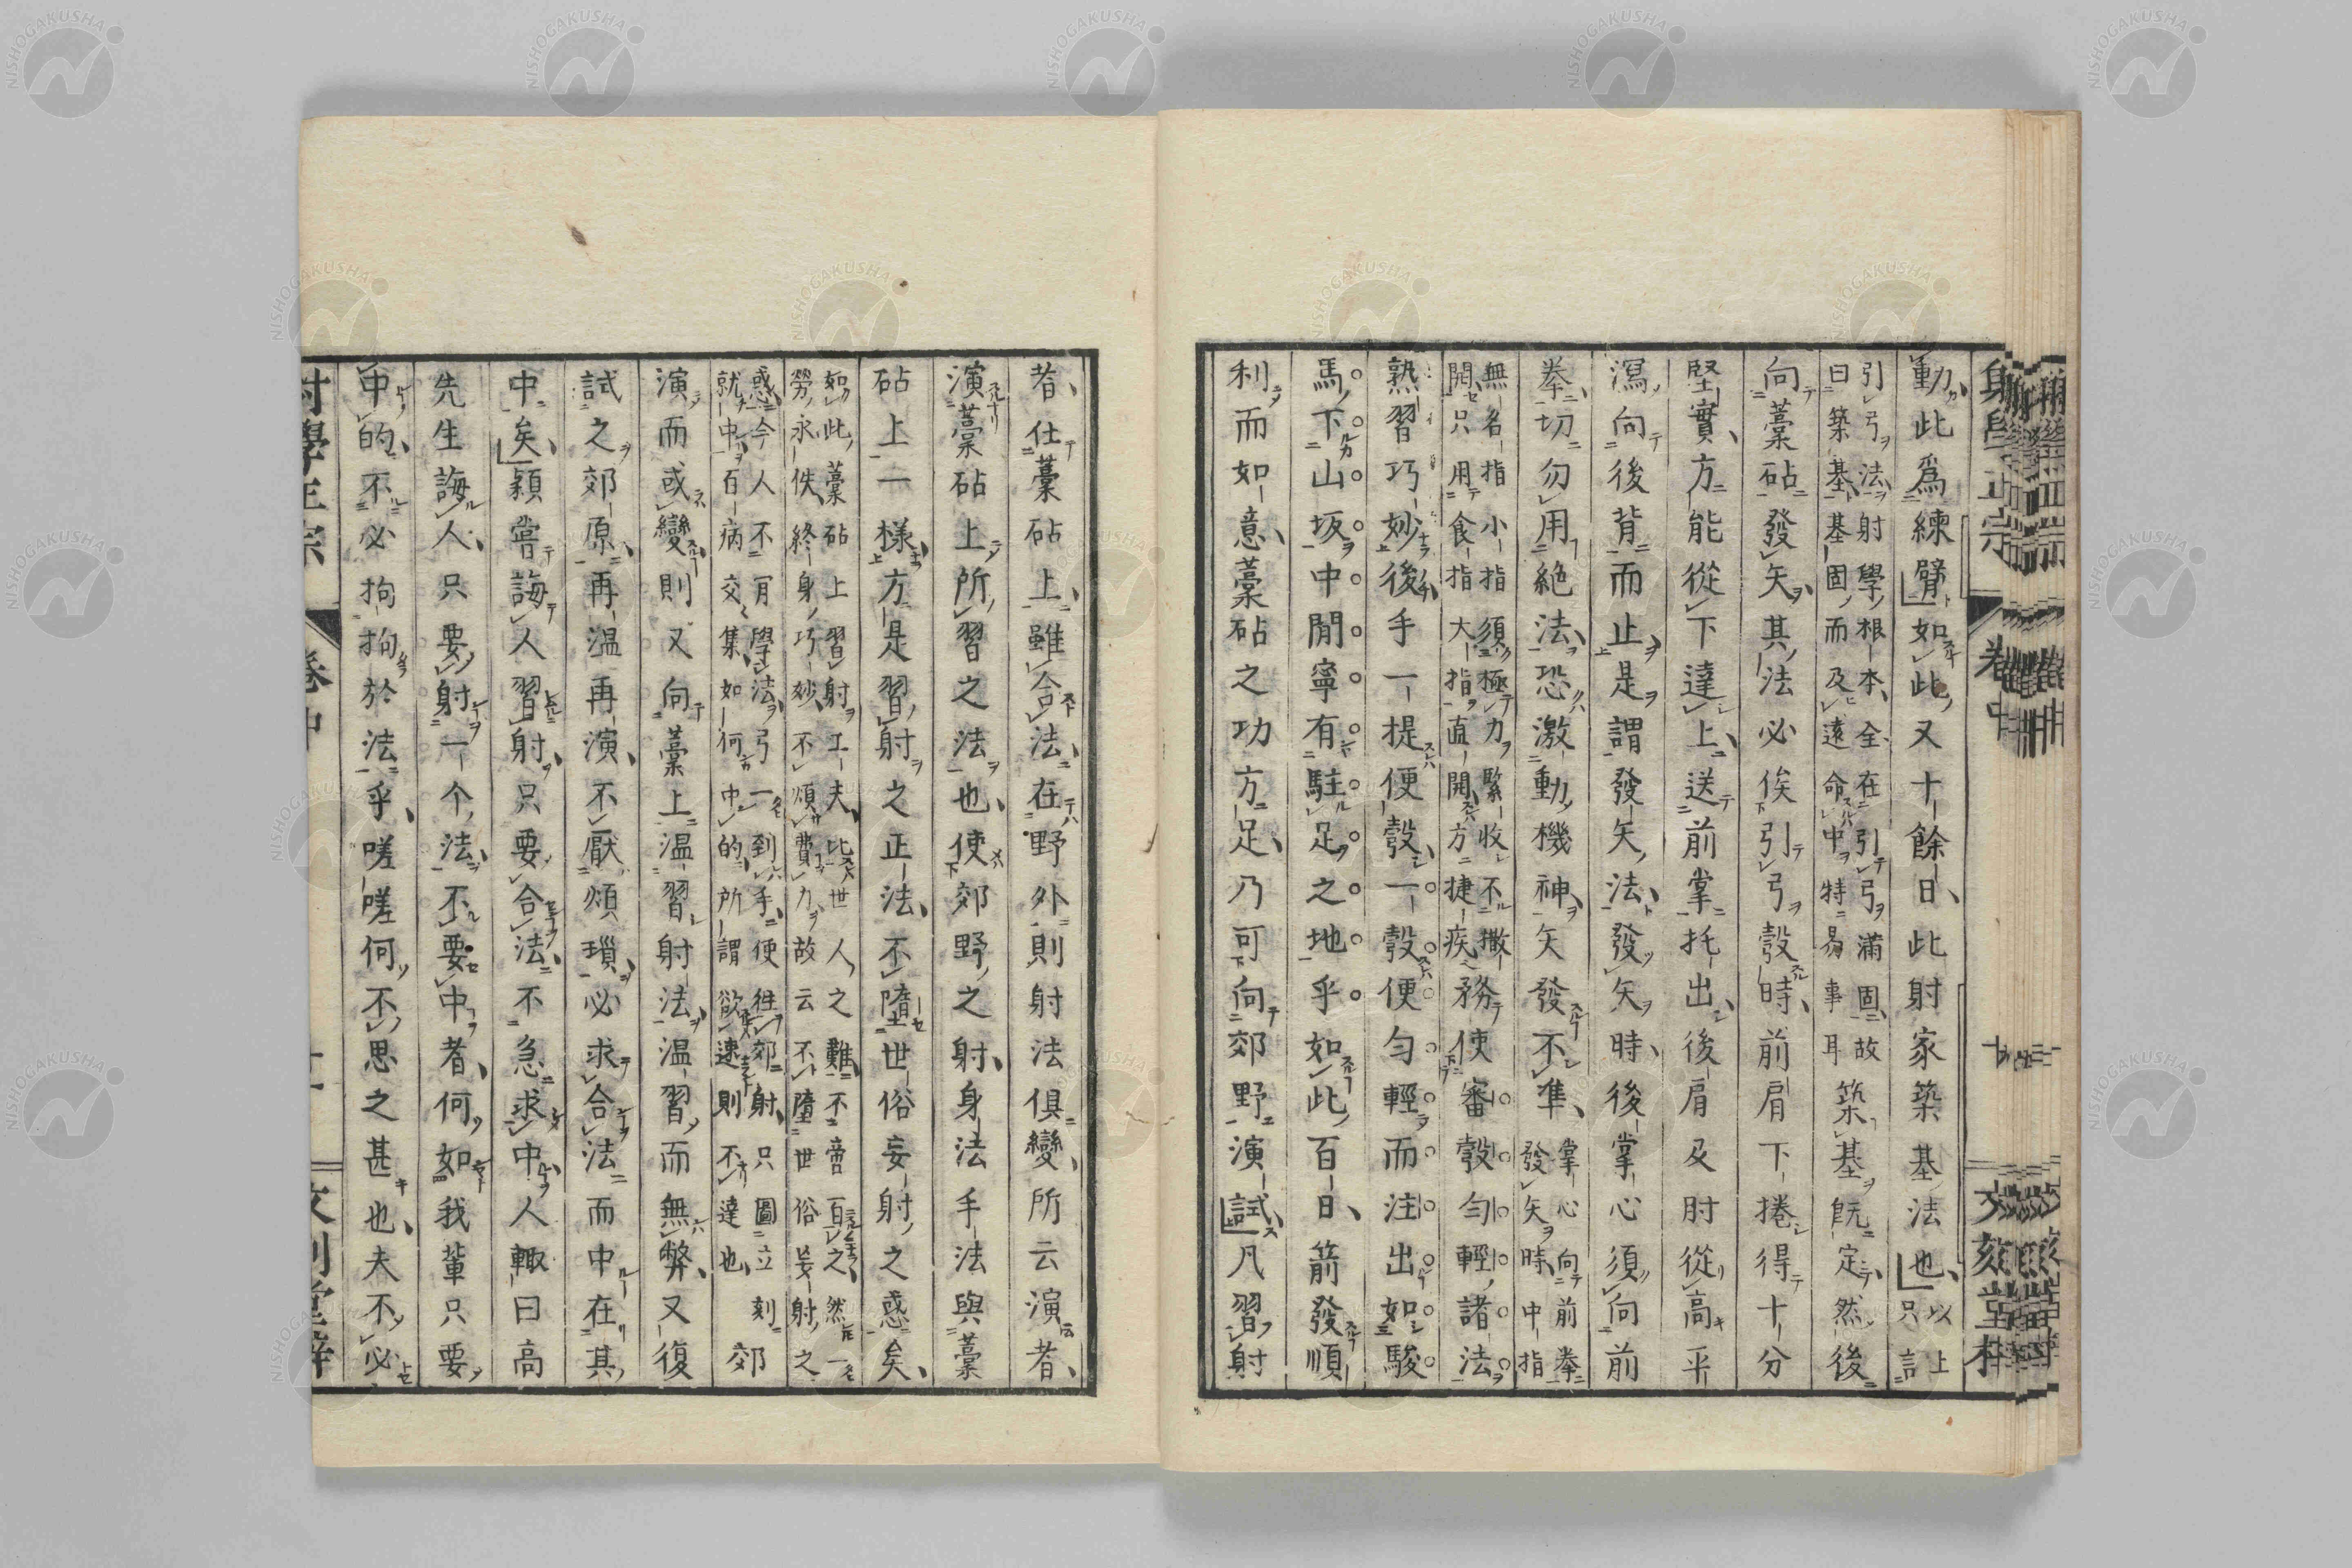 動此爲練臂如此又十餘日此射家築基法也以上只言
引弓法射學根本全在引弓滿固故
曰築基基固而及遠命中特易事耳築基旣定然後
向藁砧發矢其法必俟引弓彀時前肩下捲得十分
堅實方能從下達上送前掌托出後肩及肘從高平
瀉向後背而止是謂發矢法發矢時後掌心須向前
拳切勿用絶法恐激動機神矢發不準掌心向前拳發矢時中指
無名指小指須極力緊收不撒
開只用食指大指直開方捷疾務使審彀勻輕諸法
熟習巧妙後手一提便彀一彀便勻輕而注出如駿
馬下山坂中間寧有駐足之地乎如此百日箭發順
利而如意藁砧之功方足乃可向郊野演試凡習射
者仕藁砧上雖合法在野外則射法俱變所云演者
演藁砧上所習之法也使郊野之射身法手法與藁
砧上一樣方是習射之正法不墮世俗妄射之惑矣
如此藁砧上習射工夫比世人之難不啻百之然一
勞永佚終身巧妙不煩費力故云不墮世俗妄射之
惑今人不肎學法弓一到手便徃郊射只圖立刻
就中百病交集如何中的所謂欲速則不達也郊
演而或變則又向藁上温習射法温習而無弊又復
試之郊原再温再演不厭煩瑣必求合法而中在其
中矣穎嘗誨人習射只要合法不急求中人輙曰高
先生誨人只要射一个法不要中者何如我輩只要
中的不必拘拘於法乎嗟嗟何不思之甚也夫不必
射學正宗 卷中
射學正宗 卷中 十一